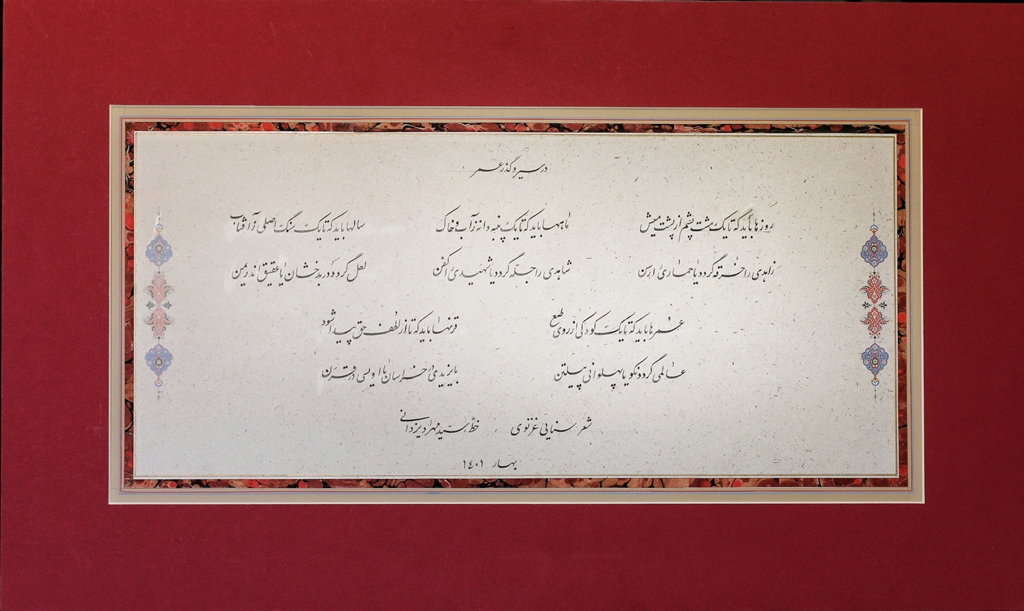 در سیر و گذر عمر
روزها باید که تا یک مشت پشم از پشت میش
زاهدی را خرقه گردد یا حماری را رسن
ماهها باید که تا یک پنبه دانه ز آب و خاک
شاهدی را حله گردد یا شهیدی را کفن
سالها باید که تا یک سنگ اصلی ز آفتاب
لعل گردد در بدخشان یا عقیق اندر یمن
عمرها باید که تا یک کودکی از روی طبع
عالمی گردد نکو یا پهلوانی پیلتن
قرنها باید که تا از لطف حق پیدا شود
بایزیدی خراسان یا اویسی در قرن
شعر سنایی غزنوی ، خط سید یزدانی
بهار ۱۴۰۱